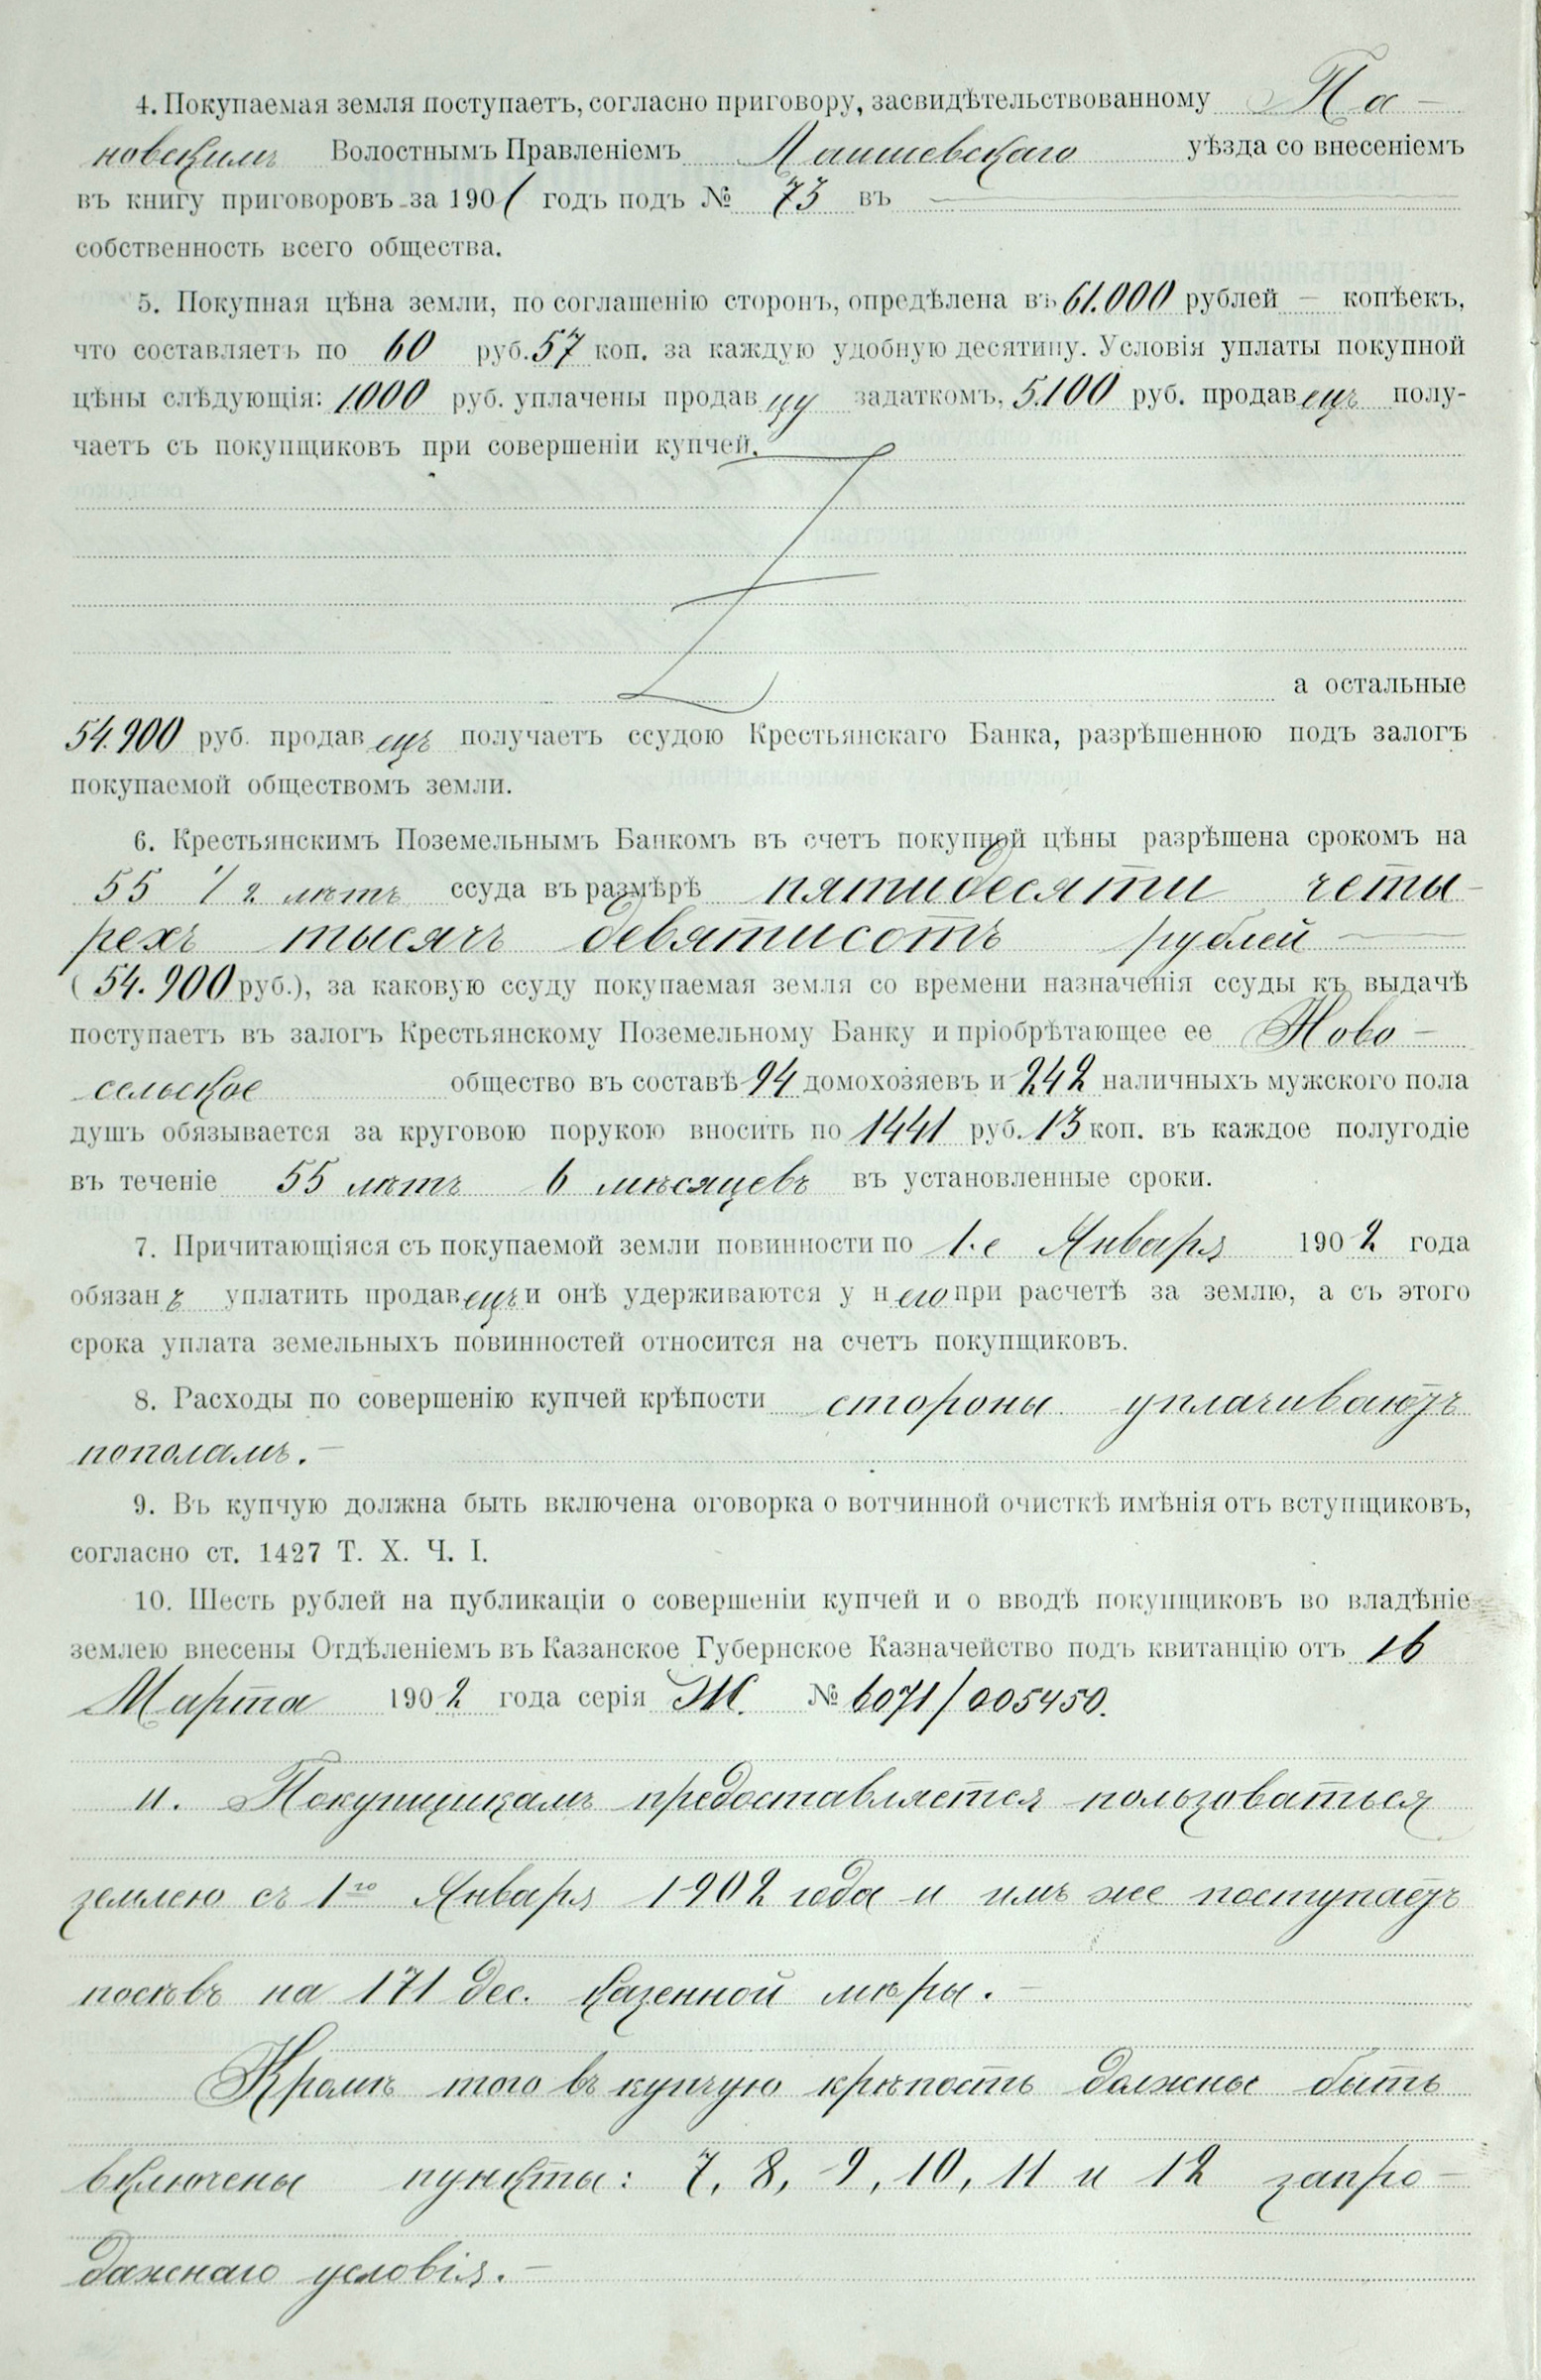 4. Покупаемая земля поступаетъ, согласно приговору, засвидѣтельствованному Па-
новскимъ Волостнымъ Правленіемъ Лаишевскаго уѣзда со внесеніемъ
въ книгу приговоровъ за 1901 годъ подъ № 73 въ
собственность всего общества.
5. Покупная цѣна земли, по соглашенію сторонъ, опредѣлена въ 61.000 рублей — копѣекъ,
что составляетъ по 60 руб. 57 коп. за каждую удобную десятину. Условія уплаты покупной
цѣны слѣдующія: 1000 руб. уплачены продавцу задаткомъ, 5.100 руб. продавецъ полу-
чаетъ съ покупщиковъ при совершеніи купчей.
а остальные
54.900 руб. продавецъ получаетъ ссудою Крестьянскаго Банка, разрѣшенною подъ залогъ
покупаемой обществомъ земли.
6. Крестьянскимъ Поземельнымъ Банкомъ въ счетъ покупной цѣны разрѣшена срокомъ на
55 1/2 лѣтъ ссуда въ размѣрѣ пятидесяти четы-
рехъ тысячъ девятисотъ рублей —
(54.900 руб.), за каковую ссуду покупаемая земля со времени назначенія ссуды къ выдачѣ
поступаетъ въ залогъ Крестьянскому Поземельному Банку и пріобрѣтающее ее Ново-
сельское общество въ составѣ 94 домохозяевъ и 242 наличныхъ мужского пола
душъ обязывается за круговою порукою вносить по 1441 руб. 13 коп. въ каждое полугодіе
въ теченіе 55 лѣтъ 6 мѣсяцевъ въ установленные сроки.
7. Причитающіяся съ покупаемой земли повинности по 1.е Января 1902 года
обязанъ уплатить продавецъ и онѣ удерживаются у него при расчетѣ за землю, а съ этого
срока уплата земельныхъ повинностей относится на счетъ покупщиковъ.
8. Расходы по совершенію купчей крѣпости стороны уплачиваютъ
пополамъ. —
9. Въ купчую должна быть включена оговорка о вотчинной очисткѣ имѣнія отъ вступщиковъ,
согласно ст. 1427 Т. X. Ч. I.
10. Шесть рублей на публикаціи о совершеніи купчей и о вводѣ покупщиковъ во владѣніе
землею внесены Отдѣленіемъ въ Казанское Губернское Казначейство подъ квитанцію отъ 16
Марта 1902 года серія Ж. № 6071/005450.
11. Покупщикамъ предоставляется пользоваться
землею съ 1го Января 1902 года и имъ же поступаетъ
посѣвъ на 171 дес. казенной мѣры. —
Кромѣ того въ купчую крѣпость должны быть
включены пункты: 7, 8, 9, 10, 11 и 12 запро-
дажнаго условія. —